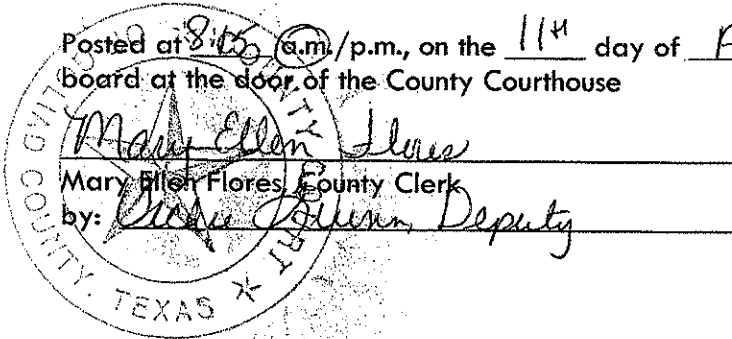 Posted at 8:15 a.m./p.m., on the 11th day of
board at the door of the County Courthouse
Mary Ellen Flores
Mary Ellen Flores, County Clerk
by: Deputy
COUNTY COURT GOLIAD COUNTY, TEXAS